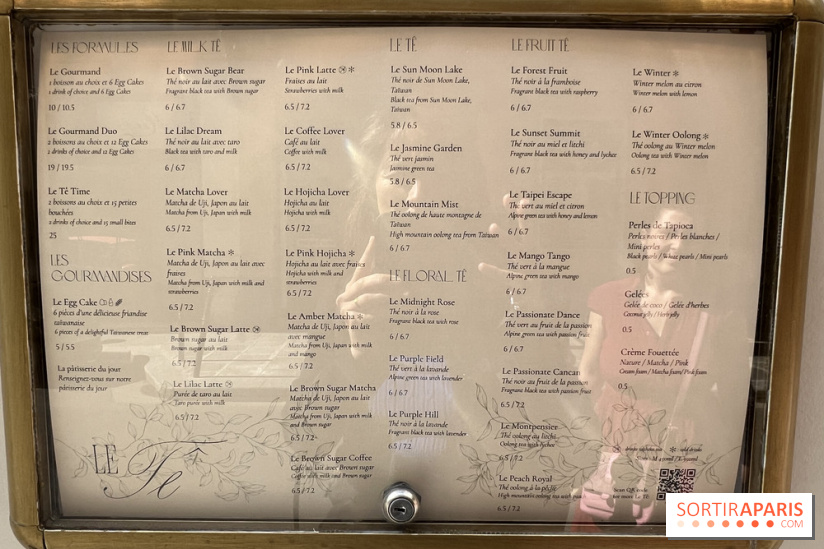 LES FORMULES
Le Gourmand
1 boisson au choix et 6 Egg Cakes
1 drink of choice and 6 Egg Cakes
10 / 10.5
Le Gourmand Duo
2 boissons au choix et 12 Egg Cakes
2 drinks of choice and 12 Egg Cakes
19 / 19.5
Le Tê Time
2 boissons au choix et 15 petites
bouchées
2 drinks of choice and 15 small bites
25
LES
GOURMANDISES
Le Egg Cake
6 pièces d'une délicieuse friandise
taïwanaise
6 pieces of a delightful Taiwanese treat
5 / 5.5
La pâtisserie du jour
Renseignez-vous sur notre
pâtisserie du jour
LE MILK TÊ
Le Brown Sugar Bear
Thé noir au lait avec Brown sugar
Fragrant black tea with Brown sugar
6 / 6.7
Le Lilac Dream
Thé noir au lait avec taro
Black tea with taro and milk
6 / 6.7
Le Matcha Lover
Matcha de Uji, Japon au lait
Matcha from Uji, Japan with milk
6.5 / 7.2
Le Pink Matcha *
Matcha de Uji, Japon au lait avec
fraises
Matcha from Uji, Japan with milk and
strawberries
6.5 / 7.2
Le Brown Sugar Latte
Brown sugar au lait
Brown sugar with milk
6.5 / 7.2
Le Lilac Latte
Purée de taro au lait
Taro purée with milk
6.5 / 7.2
Le Pink Latte *
Fraises au lait
Strawberries with milk
6.5 / 7.2
Le Coffee Lover
Café au lait
Coffee with milk
6.5 / 7.2
Le Hojicha Lover
Hojicha au lait
Hojicha with milk
6.5 / 7.2
Le Pink Hojicha *
Hojicha au lait avec fraises
Hojicha with milk and
strawberries
6.5 / 7.2
Le Amber Matcha *
Matcha de Uji, Japon au lait
avec mangue
Matcha from Uji, Japan with milk
and mango
6.5 / 7.2
Le Brown Sugar Matcha
Matcha de Uji, Japon au lait
avec Brown sugar
Matcha from Uji, Japan with milk
and Brown sugar
6.5 / 7.2
Le Brown Sugar Coffee
Café au lait avec Brown sugar
Coffee with milk and Brown sugar
6.5 / 7.2
LE TÊ
Le Sun Moon Lake
Thé noir de Sun Moon Lake,
Taïwan
Black tea from Sun Moon Lake,
Taiwan
5.8 / 6.5
Le Jasmine Garden
Thé vert jasmin
Jasmine green tea
5.8 / 6.5
Le Mountain Mist
Thé oolong de haute montagne de
Taïwan
High mountain oolong tea from Taiwan
6 / 6.7
LE FLORAL TÊ
Le Midnight Rose
Thé noir à la rose
Fragrant black tea with rose
6 / 6.7
Le Purple Field
Thé vert à la lavande
Alpine green tea with lavender
6 / 6.7
Le Purple Hill
Thé noir à la lavande
Fragrant black tea with lavender
6.5 / 7.2
LE FRUIT TÊ
Le Forest Fruit
Thé noir à la framboise
Fragrant black tea with raspberry
6 / 6.7
Le Sunset Summit
Thé noir au miel et litchi
Fragrant black tea with honey and lychee
6 / 6.7
Le Taipei Escape
Thé vert au miel et citron
Alpine green tea with honey and lemon
6 / 6.7
Le Mango Tango
Thé vert à la mangue
Alpine green tea with mango
6 / 6.7
Le Passionate Dance
Thé vert au fruit de la passion
Alpine green tea with passion fruit
6 / 6.7
Le Passionate Cancan
Thé noir au fruit de la passion
Fragrant black tea with passion fruit
6.5 / 7.2
Le Montpensier
Thé oolong au litchi
Oolong tea with lychee
6.5 / 7.2
Le Peach Royal
Thé oolong à la pêche
High mountain oolong tea with
6.5 / 7.2
Le Winter *
Winter melon au citron
Winter melon with lemon
6 / 6.7
Le Winter Oolong *
Thé oolong au Winter melon
Oolong tea with Winter melon
6.5 / 7.2
LE TOPPING
Perles de Tapioca
Perles noires / Perles blanches /
Mini perles
Black pearls / White pearls / Mini pearls
0.5
Gelées
Gelée de coco / Gelée d'herbes
Coconut jelly / Herb jelly
0.5
Crème Fouettée
Nature / Matcha / Pink
Cream foam / Matcha foam / Pink foam
0.5
LE Tê
SORTIRAPARIS
.COM